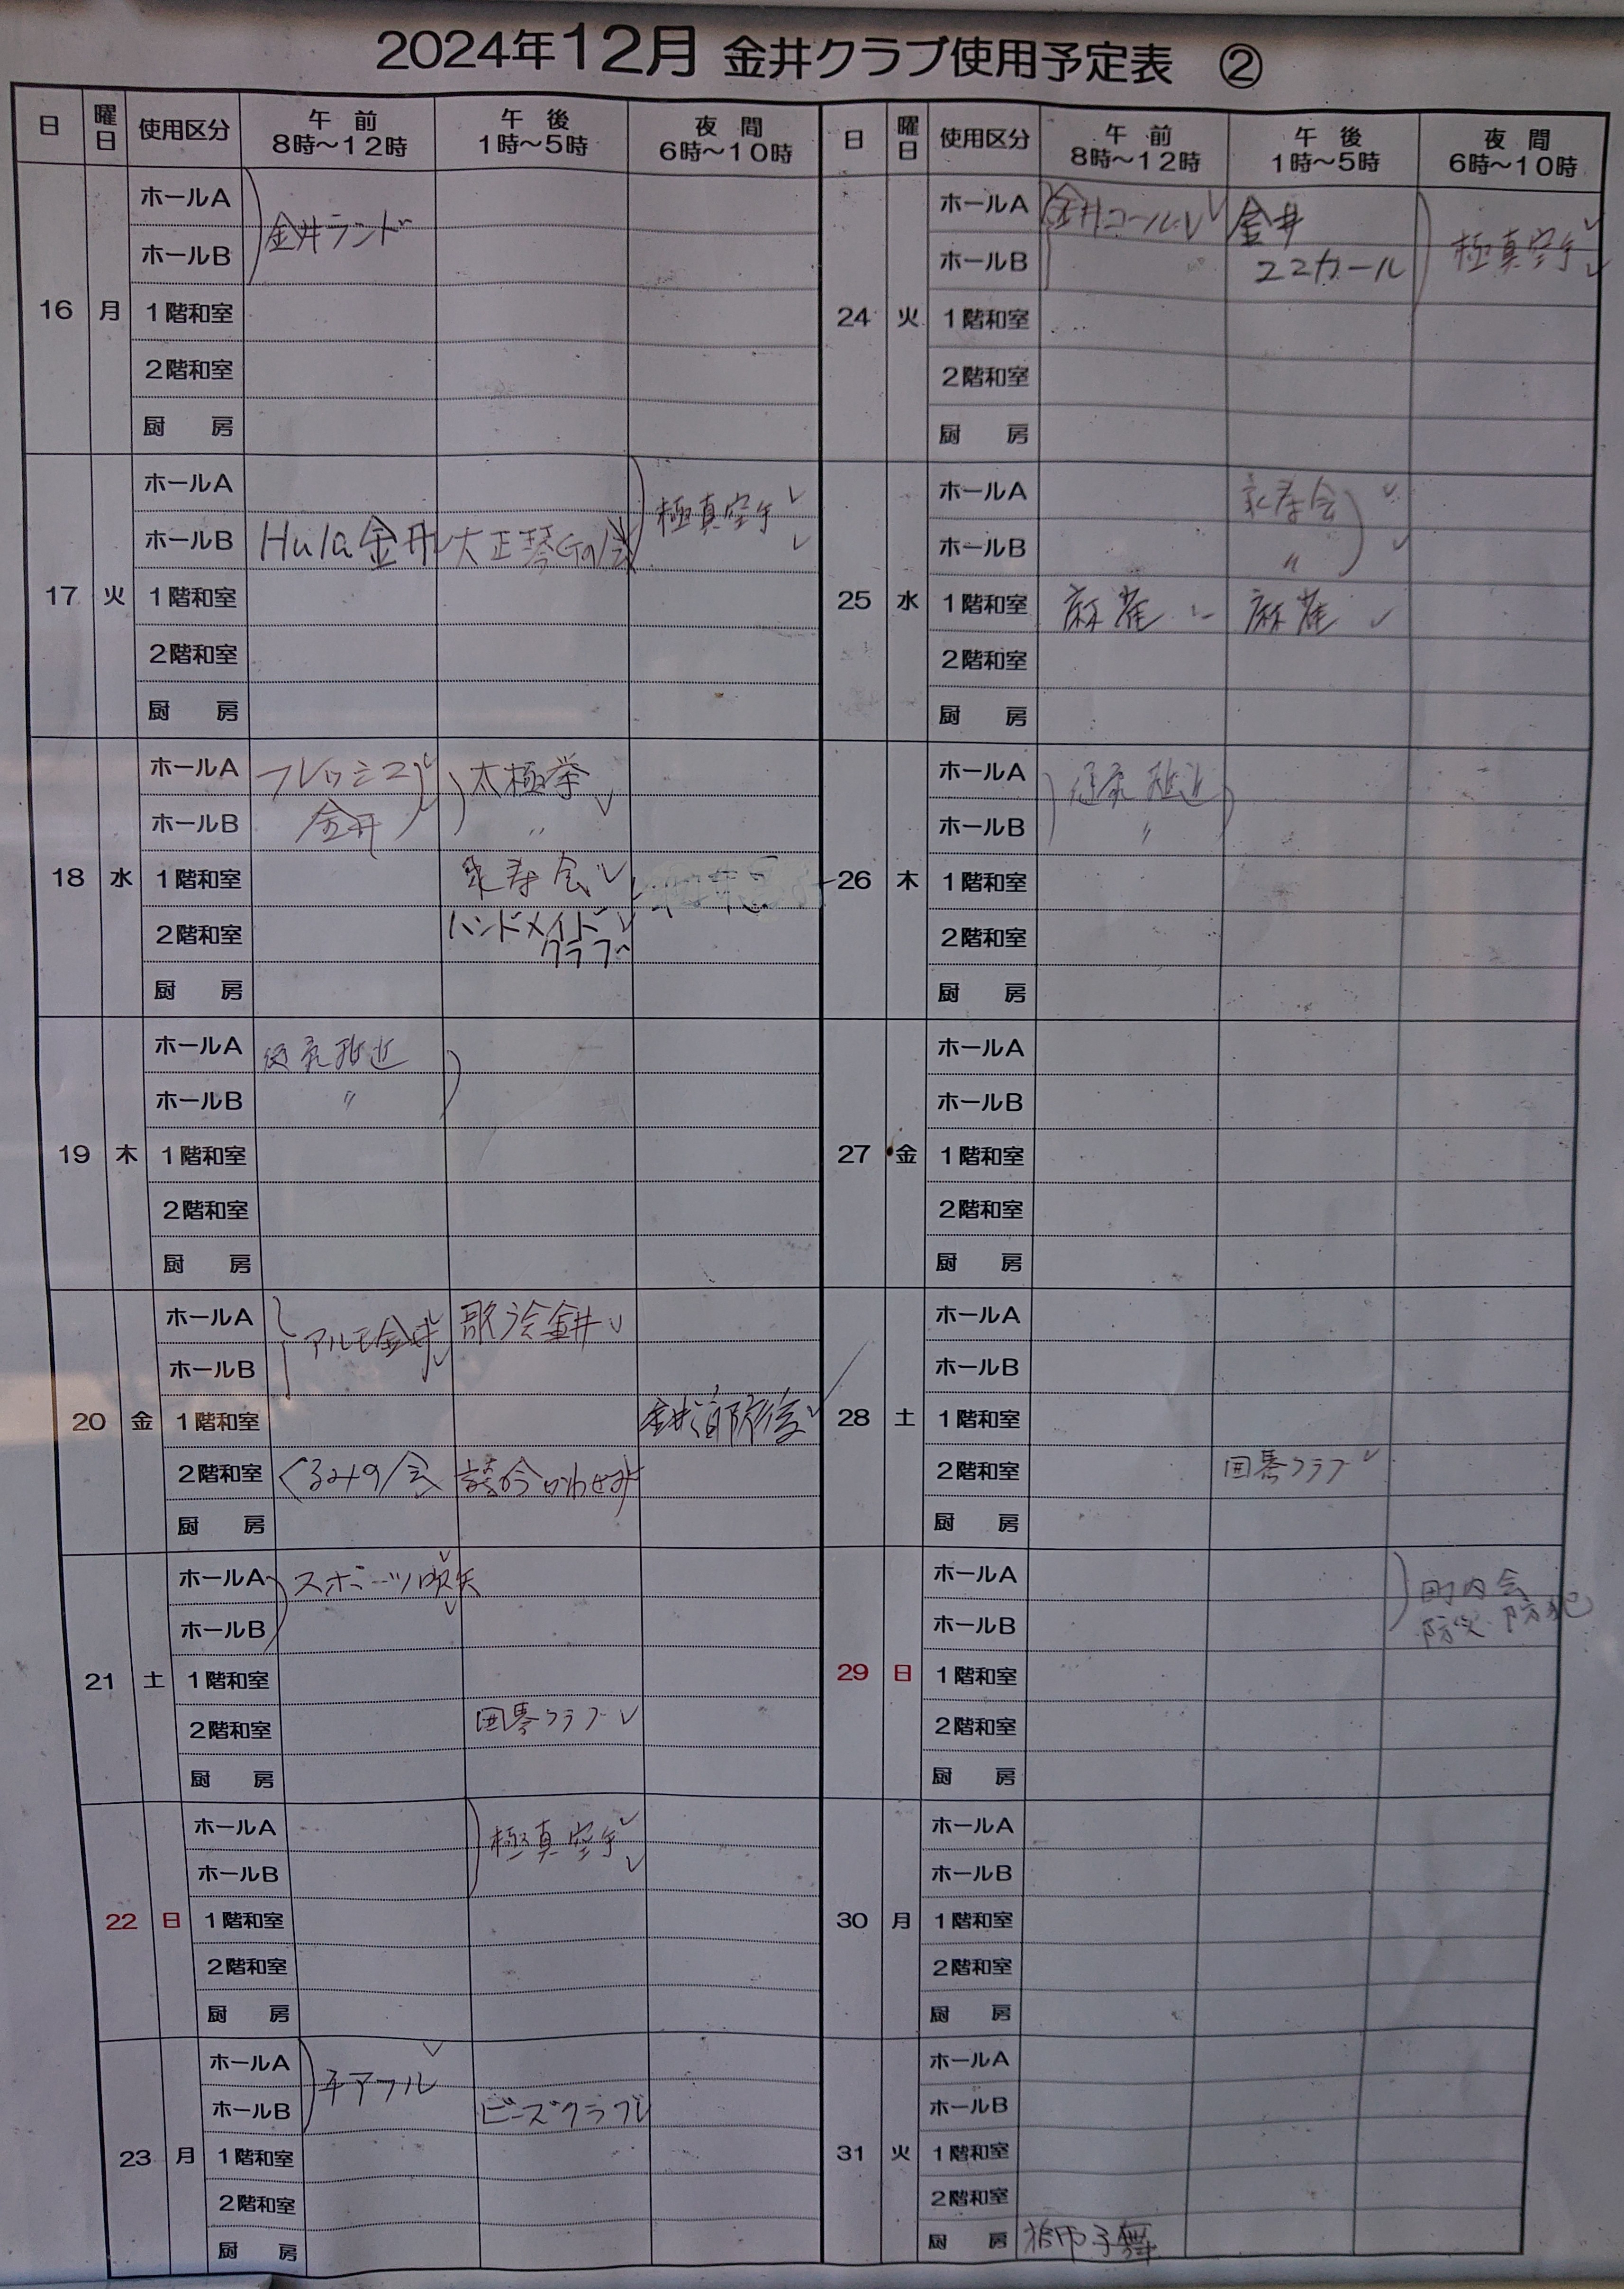 2024年12月 金井クラブ使用予定表 ②
日 曜日 使用区分 午前 8時～12時 午後 1時～5時 夜間 6時～10時
16 月
ホールA 金井ランド
ホールB
1階和室
2階和室
厨房
17 火
ホールA 極真空手
ホールB Hula金井 大正琴
1階和室
2階和室
厨房
18 水
ホールA フレッシュ 太極拳
ホールB 金井 〃
1階和室 寿会
2階和室 ハンドメイド
クラブ
厨房
19 木
ホールA 健康推進
ホールB 〃
1階和室
2階和室
厨房
20 金
ホールA アルモ金井 金井
ホールB
1階和室 金井消防
2階和室 くるみの会
厨房
21 土
ホールA スポーツ吹矢
ホールB
1階和室
2階和室 囲碁クラブ
厨房
22 日
ホールA 極真空手
ホールB
1階和室
2階和室
厨房
23 月
ホールA
ホールB ビーズクラブ
1階和室
2階和室
厨房
日 曜日 使用区分 午前 8時～12時 午後 1時～5時 夜間 6時～10時
24 火
ホールA 金井コール 金井 極真空手
ホールB
1階和室
2階和室
厨房
25 水
ホールA 寿会
ホールB 〃
1階和室 麻雀 麻雀
2階和室
厨房
26 木
ホールA 健康推進
ホールB 〃
1階和室
2階和室
厨房
27 金
ホールA
ホールB
1階和室
2階和室
厨房
28 土
ホールA
ホールB
1階和室
2階和室 囲碁クラブ
厨房
29 日
ホールA 町内会
ホールB 防災・防犯
1階和室
2階和室
厨房
30 月
ホールA
ホールB
1階和室
2階和室
厨房
31 火
ホールA
ホールB
1階和室
2階和室
厨房